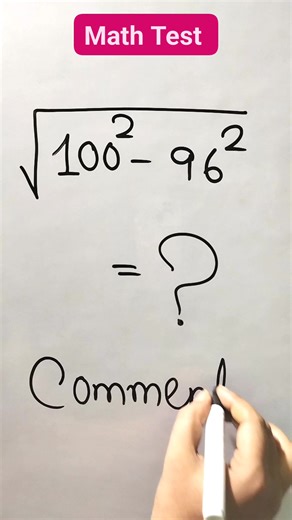 Math Test
√100² - 96²
= ?
Commen